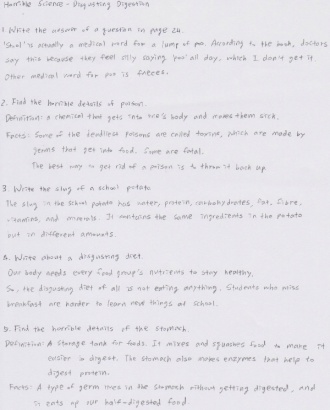 Horrible Science - Disgusting Digestion
1. Write the answer of a question in page 24.
'Stool' is actually a medical word for a lump of poo. According to the book, doctors
say this because they feel silly saying 'poo' all day, which I don't get it.
Other medical word for poo is faeces.
2. Find the horrible details of poison.
Definition: a chemical that gets into one's body and makes them sick.
Facts: Some of the deadliest poisons are called toxins, which are made by
germs that get into food. Some are fatal.
The best way to get rid of a poison is to throw it back up.
3. Write the slug of a school potato
The slug in the school potato has water, protein, carbohydrates, fat, fibre,
vitamins, and minerals. It contains the same ingredients in the potato
but in different amounts.
4. Write about a disgusting diet.
Our body needs every food group's nutrients to stay healthy.
So, the disgusting diet of all is not eating anything. Students who miss
breakfast are harder to learn new things at school.
5. Find the horrible details of the stomach.
Definition: A storage tank for foods. It mixes and squashes food to make it
easier to digest. The stomach also makes enzymes that help to
digest protein.
Facts: A type of germ lives in the stomach without getting digested, and
it eats up our half-digested food.